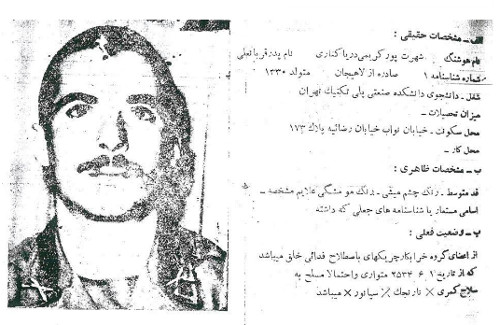 الف ـ مشخصات حقیقی :
نام هوشنگ شهرت پورکریمی دریاکناری نام پدرقربانعلی
شماره شناسنامه ۱ صادره از لاهیجان متولد ۱۳۳۰
شغل ـ دانشجوی دانشکده صنعتی پلی تکنیک تهران
میزان تحصیلات ـ
محل سکونت ـ خیابان نواب خیابان رضائیه پلاک ۱۷۳
محل کار ـ
ب ـ مشخصات ظاهری :
قد متوسط ـ رنگ چشم میشی ـ رنگ مو مشگی علایم مشخصه ـ
اسامی مستعار یا شناسنامه های جعلی که داشته
پ ـ وضعیت فعلی :
از اعضای گروه خرابکارچریکهای باصطلاح فدائی خلق میباشد
که از تاریخ ۱ ر ۶ ر ۲۵۳۴ متواری واحتمالا مسلح به
سلاح کمری × نارنجک ٪ سیانور × میباشد